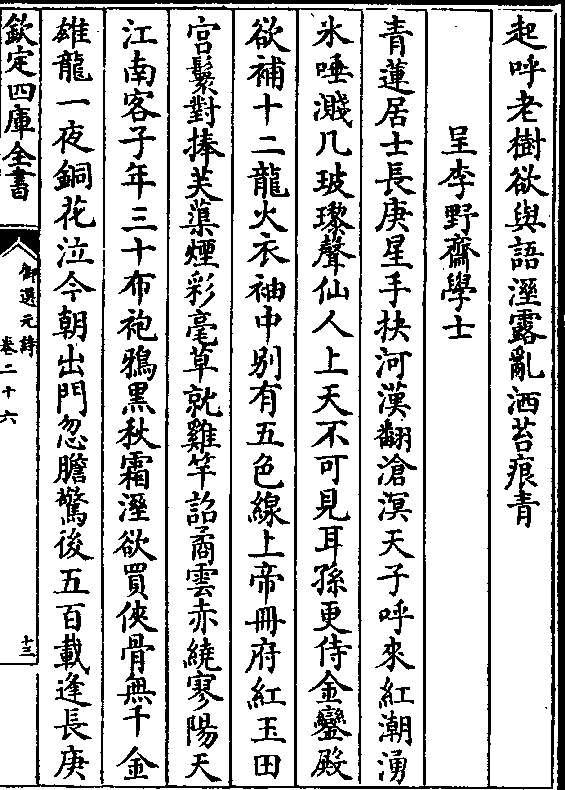 起呼老樹欲與語溼露亂洒苔痕青
呈李野齋學士
青蓮居士長庚星手抉河漢翻滄溟天子呼來紅潮湧
氷唾濺几玻瓈聲仙人上天不可見耳孫更侍金鑾殿
欲補十二龍火衣袖中別有五色線上帝冊府紅玉田
宫鬟對捧芙蕖煙彩毫草就雞竿詔矞雲赤繞寥陽天
江南客子年三十布袍鴉黑秋霜溼欲買俠骨無千金
雄龍一夜銅花泣今朝出門忽膽驚後五百載逢長庚
欽定四庫全書
御選元詩
卷二十六
十三